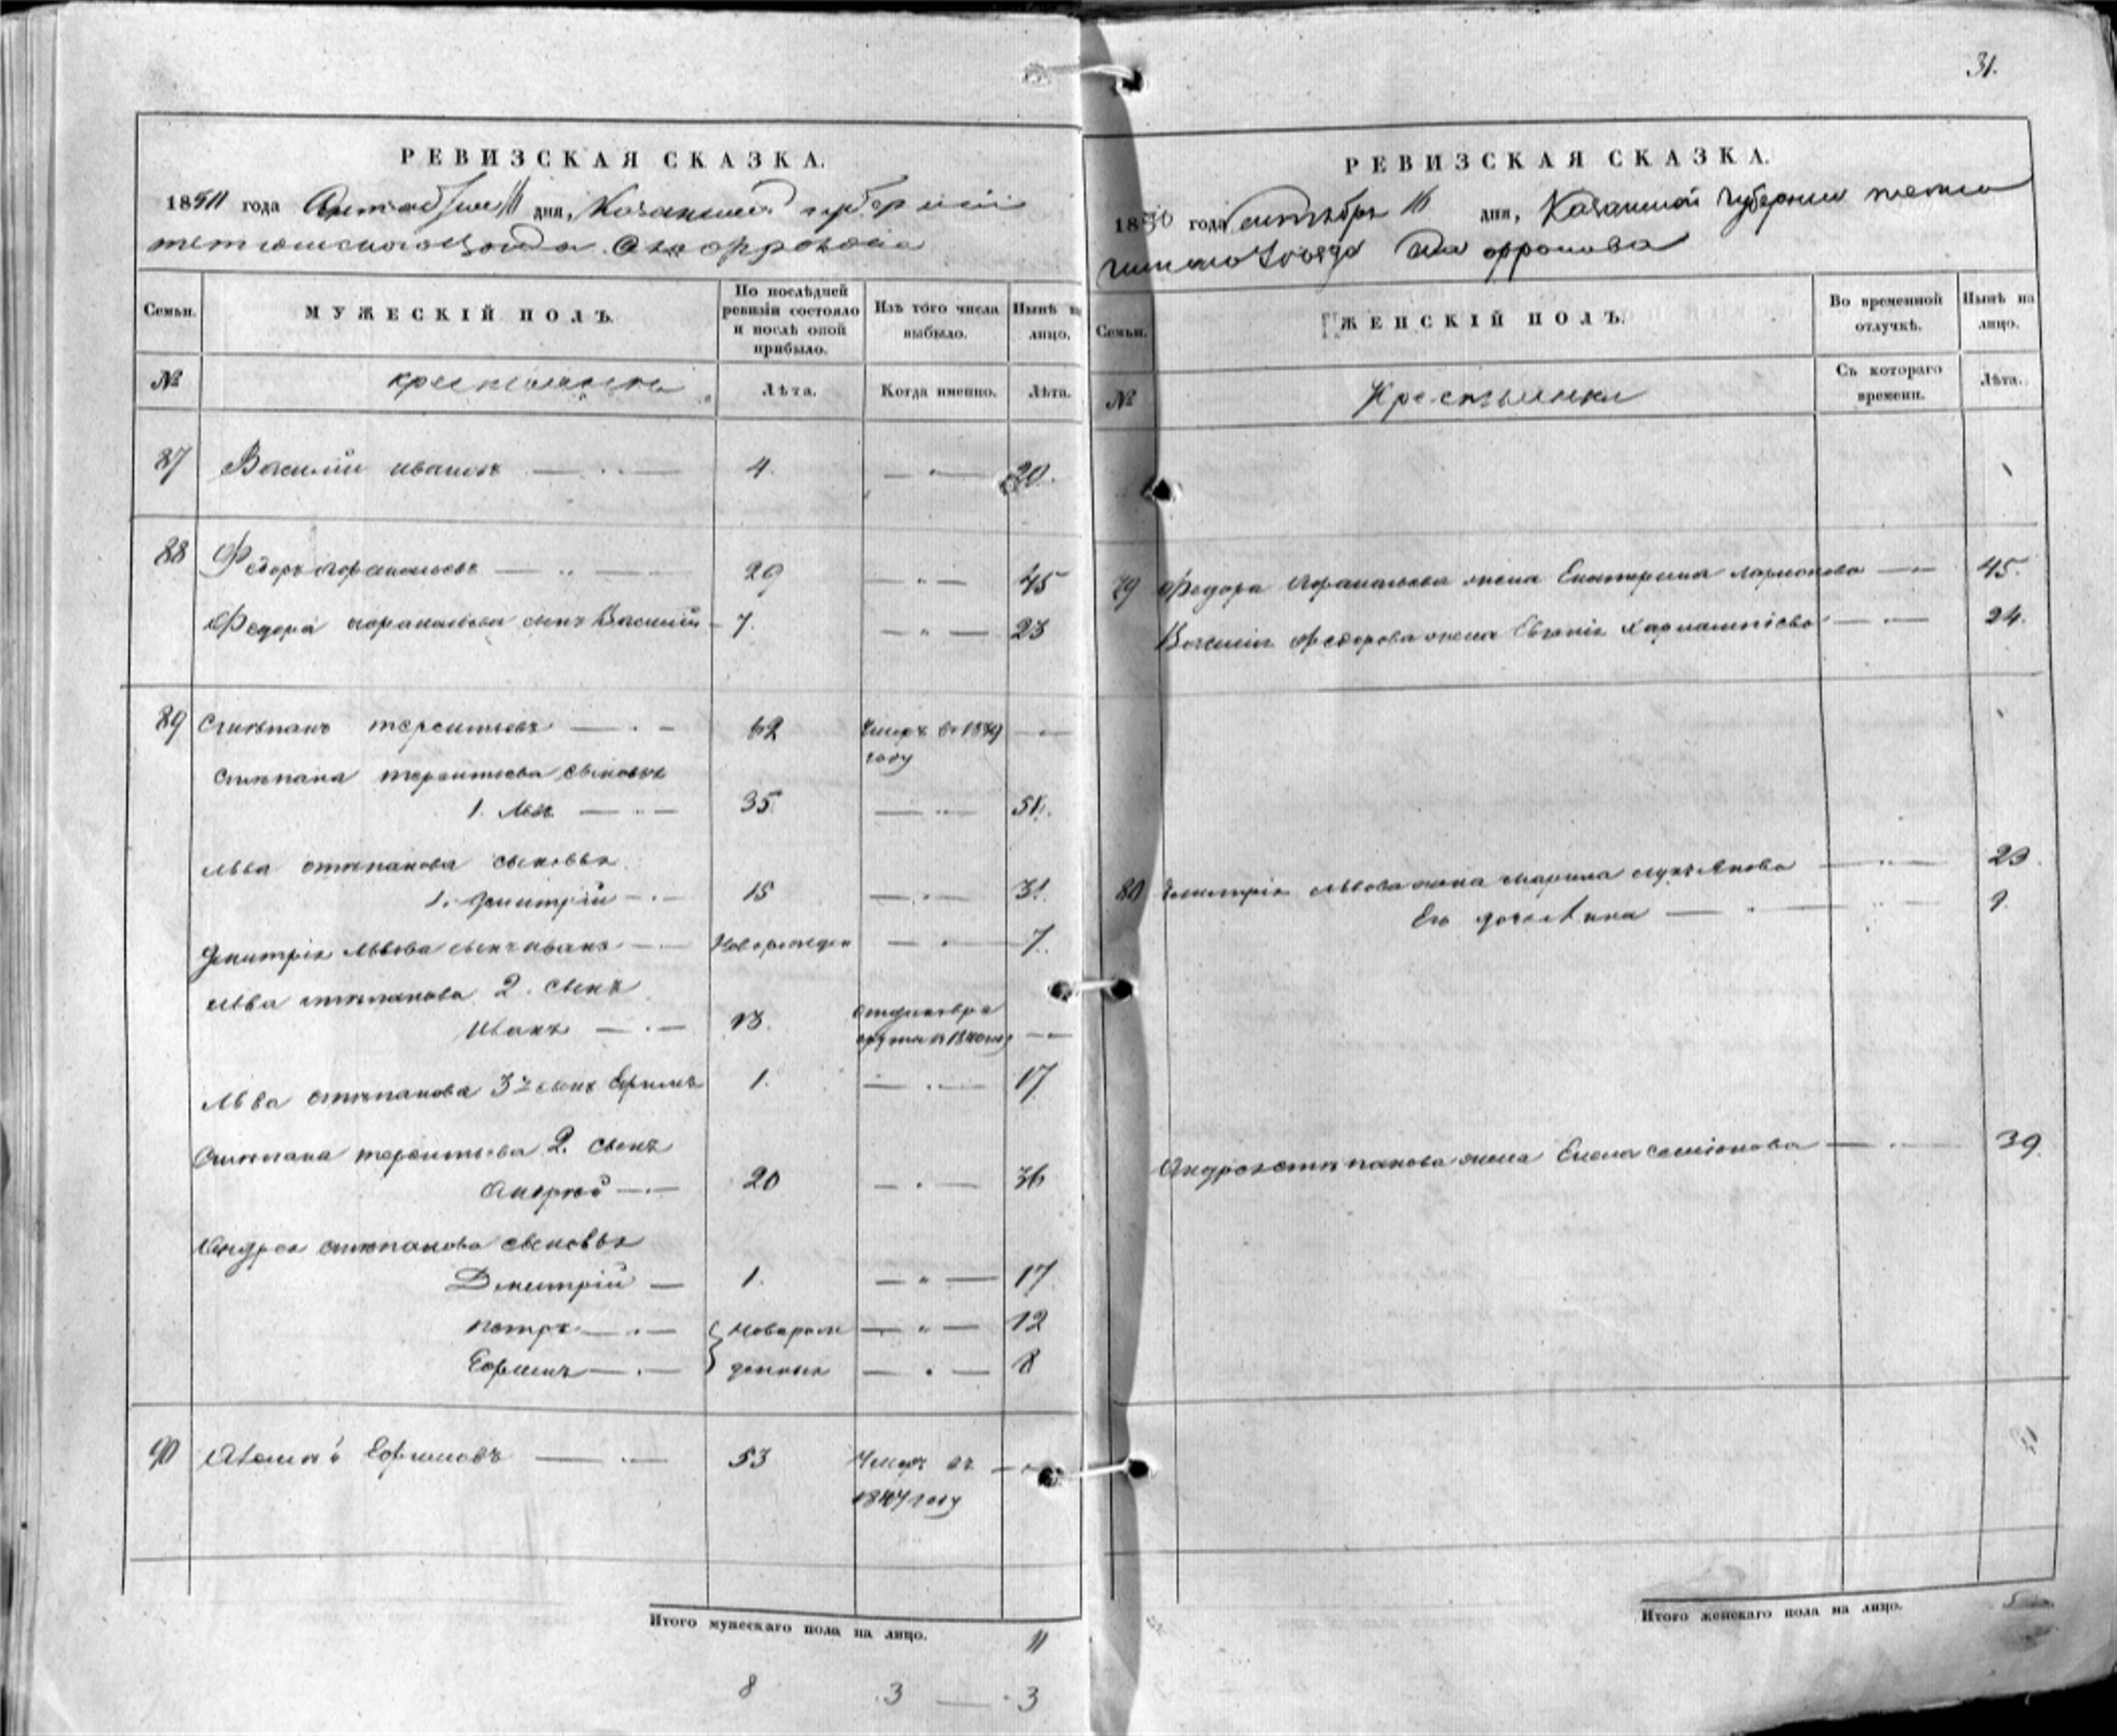 РЕВИЗСКАЯ СКАЗКА.
1850 года дня, Казанской губернии
тетюшскаго уѣзда
Семьи.
МУЖЕСКІЙ ПОЛЪ.
По послѣдней ревизіи состояло и послѣ оной прибыло.
Изъ того числа выбыло.
Нынѣ на лицо.
№
Лѣта.
Когда именно.
Лѣта.
87 Василій Ивановъ 4. 20.
88 Федоръ Афанасьевъ 29 45
Федора Афанасьева сынъ Василій 7. 23
89 Степанъ терентьевъ 62 Умеръ въ 1849 году
Степана терентьева сыновья
1. Левъ 35 51.
Льва степанова сыновья
1. Дмитрій 15 31.
Дмитрія Львова сынъ иванъ Новорожден 7.
Льва степанова 2. сынъ
Иванъ 13. 1840
Льва степанова 3й сынъ Ефимъ 1. 17
Степана терентьева 2. сынъ
Андрей 20 36
Андрея степанова сыновья
Дмитрій 1. 17
петръ новорож 12
Ефимъ денные 8
90 Ефимовъ 53 Умеръ въ
1847 году
Итого мужескаго пола на лицо. 11
8 3 3
31.
РЕВИЗСКАЯ СКАЗКА.
1850 года октября дня, Казанской Губерніи тетю
шскаго уѣзда
Семьи.
ЖЕНСКІЙ ПОЛЪ.
Во временной отлучкѣ.
Нынѣ на лицо.
№
Крестьянки
Съ котораго времени.
Лѣта.
79 Федора Афанасьева жена Екатерина Ларионова 45.
Василія Федорова жена Евгенія 24.
80 Дмитрія Львова жена Марина лукьянова 23.
Его дочь Анна 9.
Андрея степанова жена Елена семіонова 39.
Итого женскаго пола на лицо. 5